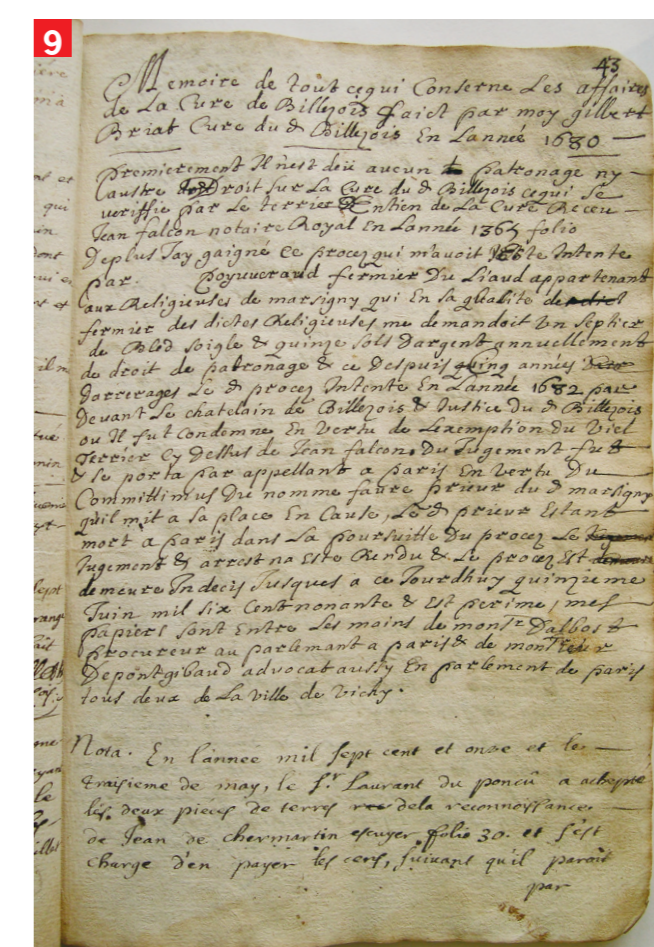 9
43
Memoire de tout cequi Conserne Les affaires
de La Cure de Billezois faict par moy gilbert
Briat Cure du d Billezois En Lannée 1680
premierement Il nest deü aucun patronage ny
austre Droit sur La Cure du d Billezois cequi se
veriffie par Le terrier Entien de La Cure Receu
Jean falcon notaire Royal En Lannée folio
Deplus Jay gaigné Ce procez qui mavoit Intente
par. fermier Du Liaud appartenant
aux Religieuses de marsigny qui En sa qualité
fermier des dictes Religieuses me demandoit Un septier
de Bled soigle & quinze sols Dargent annuellement
de droit de patronage & ce Despuis quinq années
Darrerages Le d procez Intente En Lannée 1682 par
Devant Le chatelain de Billezois & Justice du d Billezois
ou Il fut Condemne En vertu de Lexemption du Viel
Terrier Cy Dessus de Jean falcon. Du Jugement fut
& se porta par appellant a paris En vertu Du
Committimus Du nomme faure prieur du d marsigny
quil mit a sa place En Cause, Le d prieur Estant
mort a paris dans La poursuitte Du procez Le
Jugement & arrest na Este Rendu & Le procez Est
demeure Indecis Jusques a ce Jourdhuy quinzieme
Juin mil six Cent nonante & Est perime, mes
papiers sont Entre Les mains de monsr Dalbost
procureur au parlemant a paris & de monsieur
Depontgibaud advocat aussy En parlement de paris
tous deux de La ville de Vichy.
Nota. En l'annee mil sept cent et onze et le
traisieme de may, le sr Laurant du poncû a achepté
les deux pieces de terres dela reconnoissance
de Jean de chermartin escuyer folio 30. et s'est
charge d'en payer les cens, suivant qu'il paroit
par